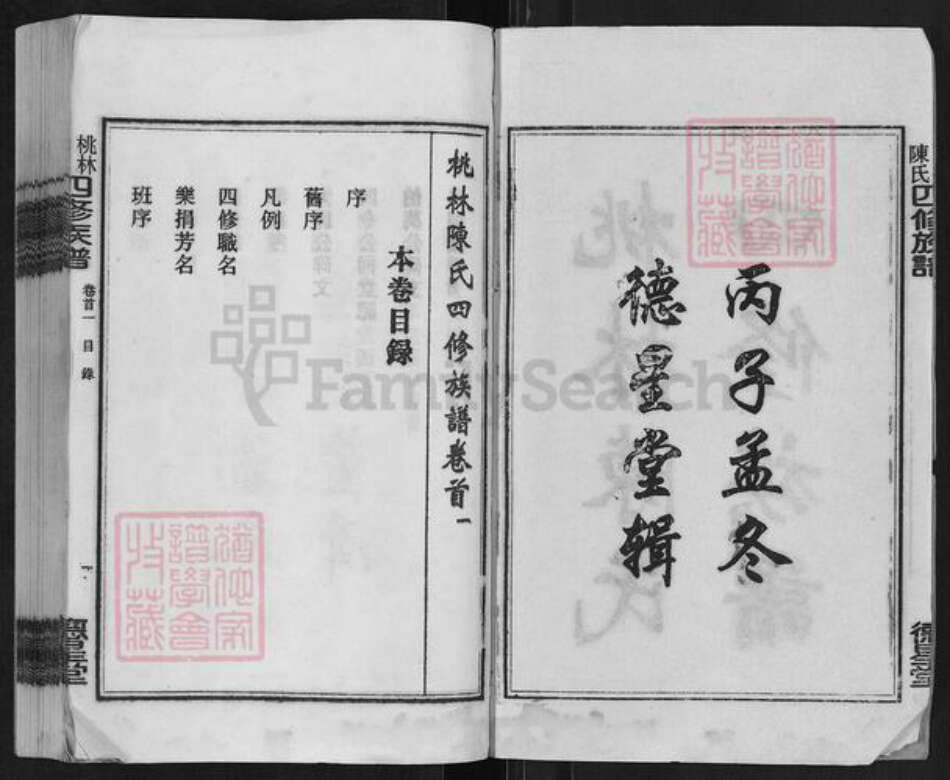 陳氏四修族譜
德星堂
丙子孟冬
德星堂輯
桃林陳氏四修族譜卷首一
本卷目錄
序
舊序
凡例
四修職名
樂捐芳名
班序
桃林四修族譜
卷首一
目錄
德星堂
FamilySearch